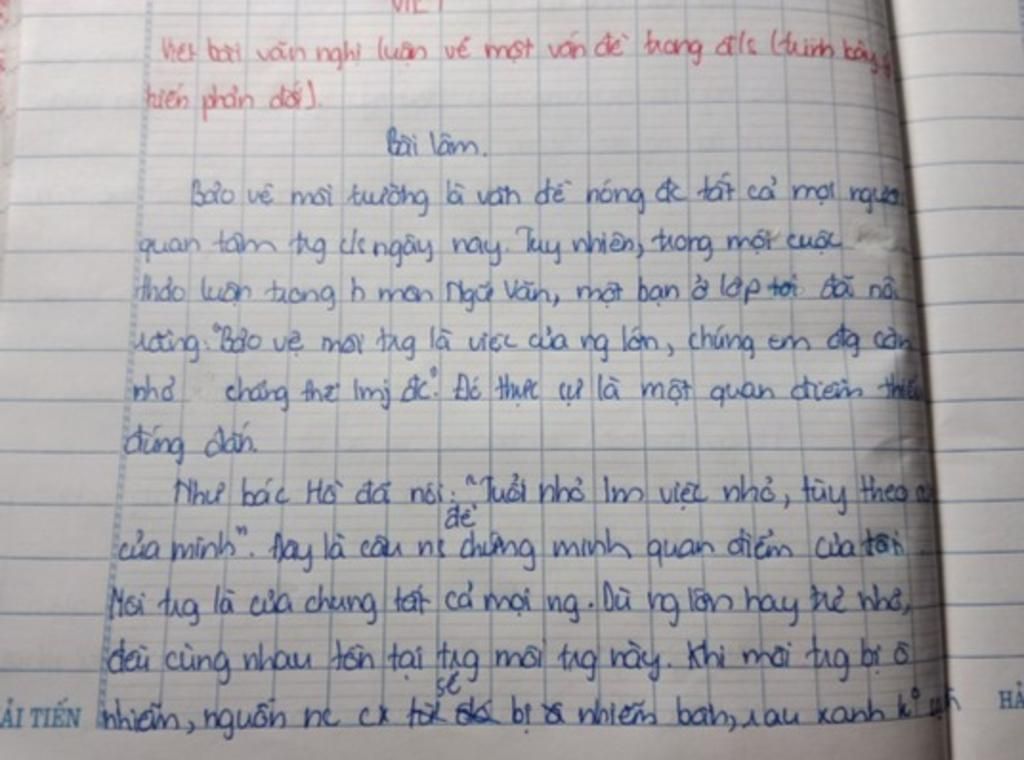 VIẾT
Viết bài văn nghị luận về một vấn đề trong đ/s (trình bày ý
kiến phản đối).
Bài làm.
Bảo vệ môi trường là vấn đề nóng đc tất cả mọi người
quan tâm trg c/s ngày nay. Tuy nhiên, trong một cuộc
thảo luận trong h môn Ngữ Văn, một bạn ở lớp tôi đã nói
"Bảo vệ môi trg là việc của ng lớn, chúng em đg còn
nhỏ chẳng thể lmj đc". Đó thực sự là một quan điểm thiếu
đúng đắn.
Như bác Hồ đã nói: "Tuổi nhỏ lm việc nhỏ, tùy theo
của mình". Đay là câu ns để chứng minh quan điểm của tôi.
Môi trg là của chung tất cả mọi ng. Dù ng lớn hay trẻ nhỏ,
đều cùng nhau tồn tại trg môi trg này. Khi môi trg bị ô
nhiễm, nguồn nc cx sẽ bị ô nhiễm bẩn, rau xanh
ẢI TIẾN
HẢ